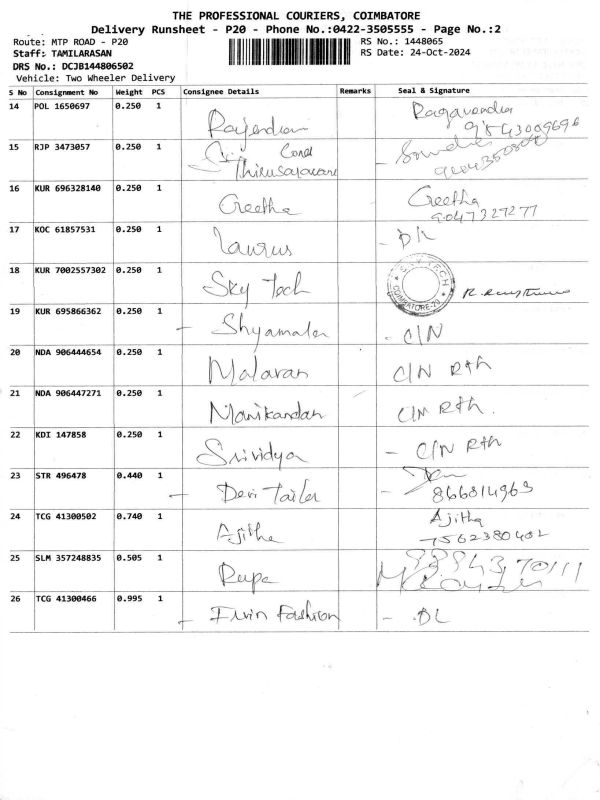 THE PROFESSIONAL COURIERS, COIMBATORE
Delivery Runsheet - P20 - Phone No.:0422-3505555 - Page No.:2
Route: MTP ROAD - P20
RS No.: 1448065
Staff: TAMILARASAN
RS Date: 24-Oct-2024
DRS No.: DCJB144806502
Vehicle: Two Wheeler Delivery
S No Consignment No Weight PCS Consignee Details Remarks Seal & Signature
14 POL 1650697 0.250 1 Rajendran Ragavendra
9843009696
15 RJP 3473057 0.250 1 Sri Cones
Thirusayanare
16 KUR 696328140 0.250 1 Geetha Geetha
9047327277
17 KOC 61857531 0.250 1 Laurus - DL
18 KUR 7002557302 0.250 1 Sky Tech SKY TECH COIMBATORE-20
19 KUR 695866362 0.250 1 - Shyamala - C/N
20 NDA 906444654 0.250 1 Malaran C/N Rth
21 NDA 906447271 0.250 1 Manikandan C/N Rth.
22 KDI 147858 0.250 1 Srividya - C/N Rth
23 STR 496478 0.440 1 - Devi Tailer -
866814963
24 TCG 41300502 0.740 1 Ajitha Ajitha
7562380402
25 SLM 357248835 0.505 1 Rupa
26 TCG 41300466 0.995 1 - Irvin Fashion - DL